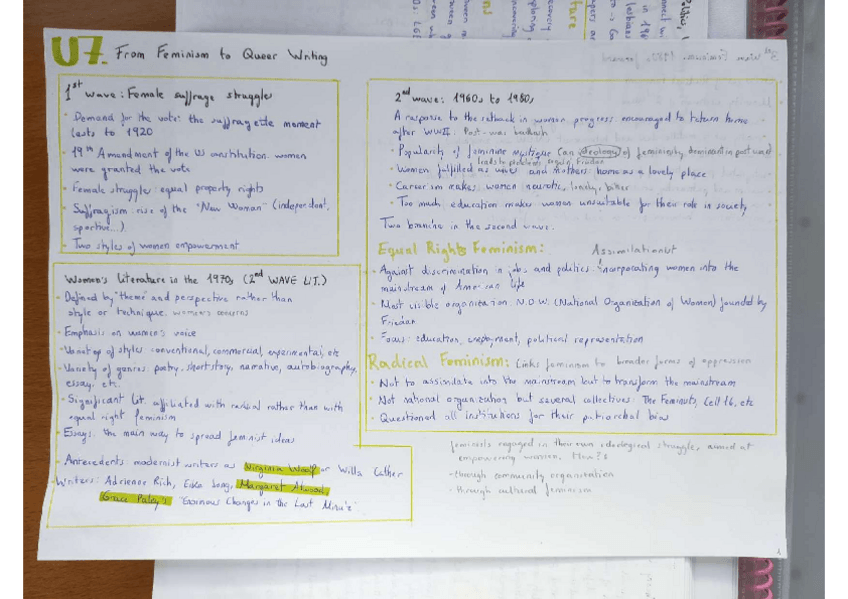 U7. From Feminism to Queer Writing
1st wave: Female suffrage struggles
· Demand for the vote: the suffragette moment
lasts to 1920
· 19th Amendment of the US constitution. women
were granted the vote
· Female struggles: equal property rights
· Suffragism: rise of the "New Woman" (independent,
sportive...)
· Two styles of women empowerment
Women's Literature in the 1970s (2nd WAVE LIT.)
· Defined by "theme" and perspective rather than
style or technique. women's concerns
· Emphasis on women's voice
· Variety of styles: conventional, commercial, experimental, etc
· Variety of genres: poetry, short story, narrative, autobiography,
essay. etc.
· Significant lit. affiliated with radical rather than with
equal right feminism
· Essays: the main way to spread feminist ideas
· Antecedents modernist writers as Virginia Woolf or Willa Cather
· Writers: Adrienne Rich, Erica Jong, Margaret Atwood,
Grace Paley's "Enormous Changes in the Last Minute"
2nd wave: 1960s to 1980s
A response to the setback in women progress: encouraged to return home
after WWII. Post-war backlash
· Popularity of feminine mystique (an ideology of femininity dominant in post war)
leads to problems, Friedan
· Women fulfilled as wives and mothers: home as a lovely place
· Careerism makes women neurotic, lonely, bitter
· Too much education makes women unsuitable for their role in society
Two branches in the second wave.
Equal Rights Feminism: Assimilationist
· Against discrimination in jobs and politics. incorporating women into the
mainstream of American life
· Most visible organization: N.O.W. (National Organization of Women) founded by
Friedan
· Focus: education, employment, political representation
Radical Feminism: Links feminism to broader forms of oppression
· Not to assimilate into the mainstream but to transform the mainstream
· Not national organization but several collectives: The Feminists, Cell 16, etc
· Questioned all institutions for their patriarchal bias
feminists engaged in their own ideological struggle, aimed at
empowering women. How?
- through community organization
- through cultural feminism
1